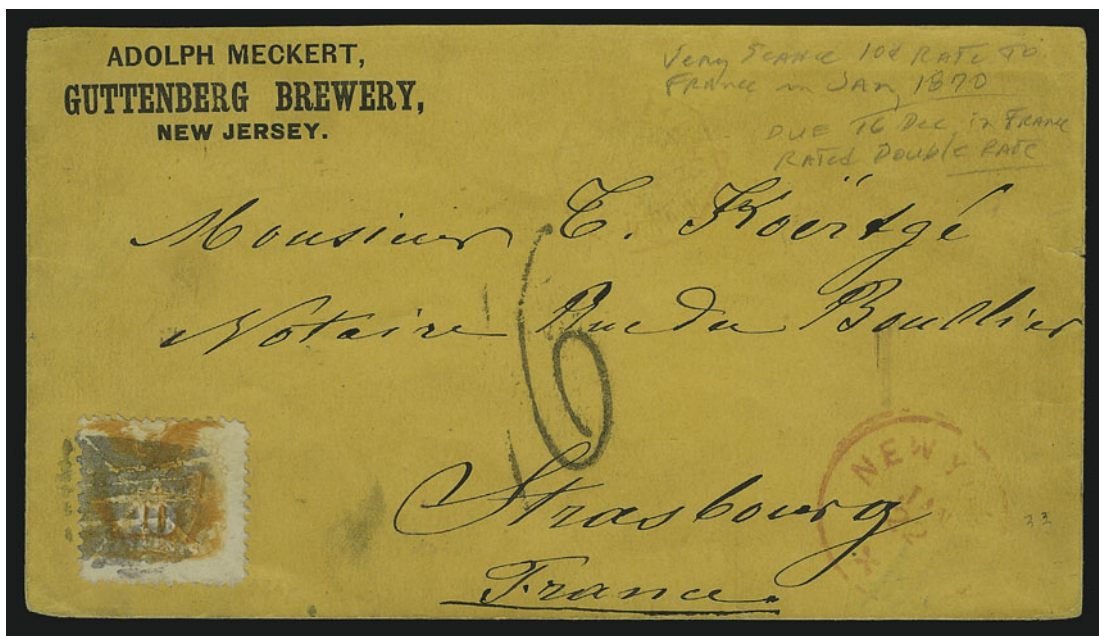 ADOLPH MECKERT,
GUTTENBERG BREWERY,
NEW JERSEY.
Very Scarce 10¢ Rate to
France in Jan, 1870
Due 16 Dec. in France
Rated Double Rate
Monsieur E. Koërtgé
Notaire Rue du
16
Strasbourg
France.
NEW Y
10
33